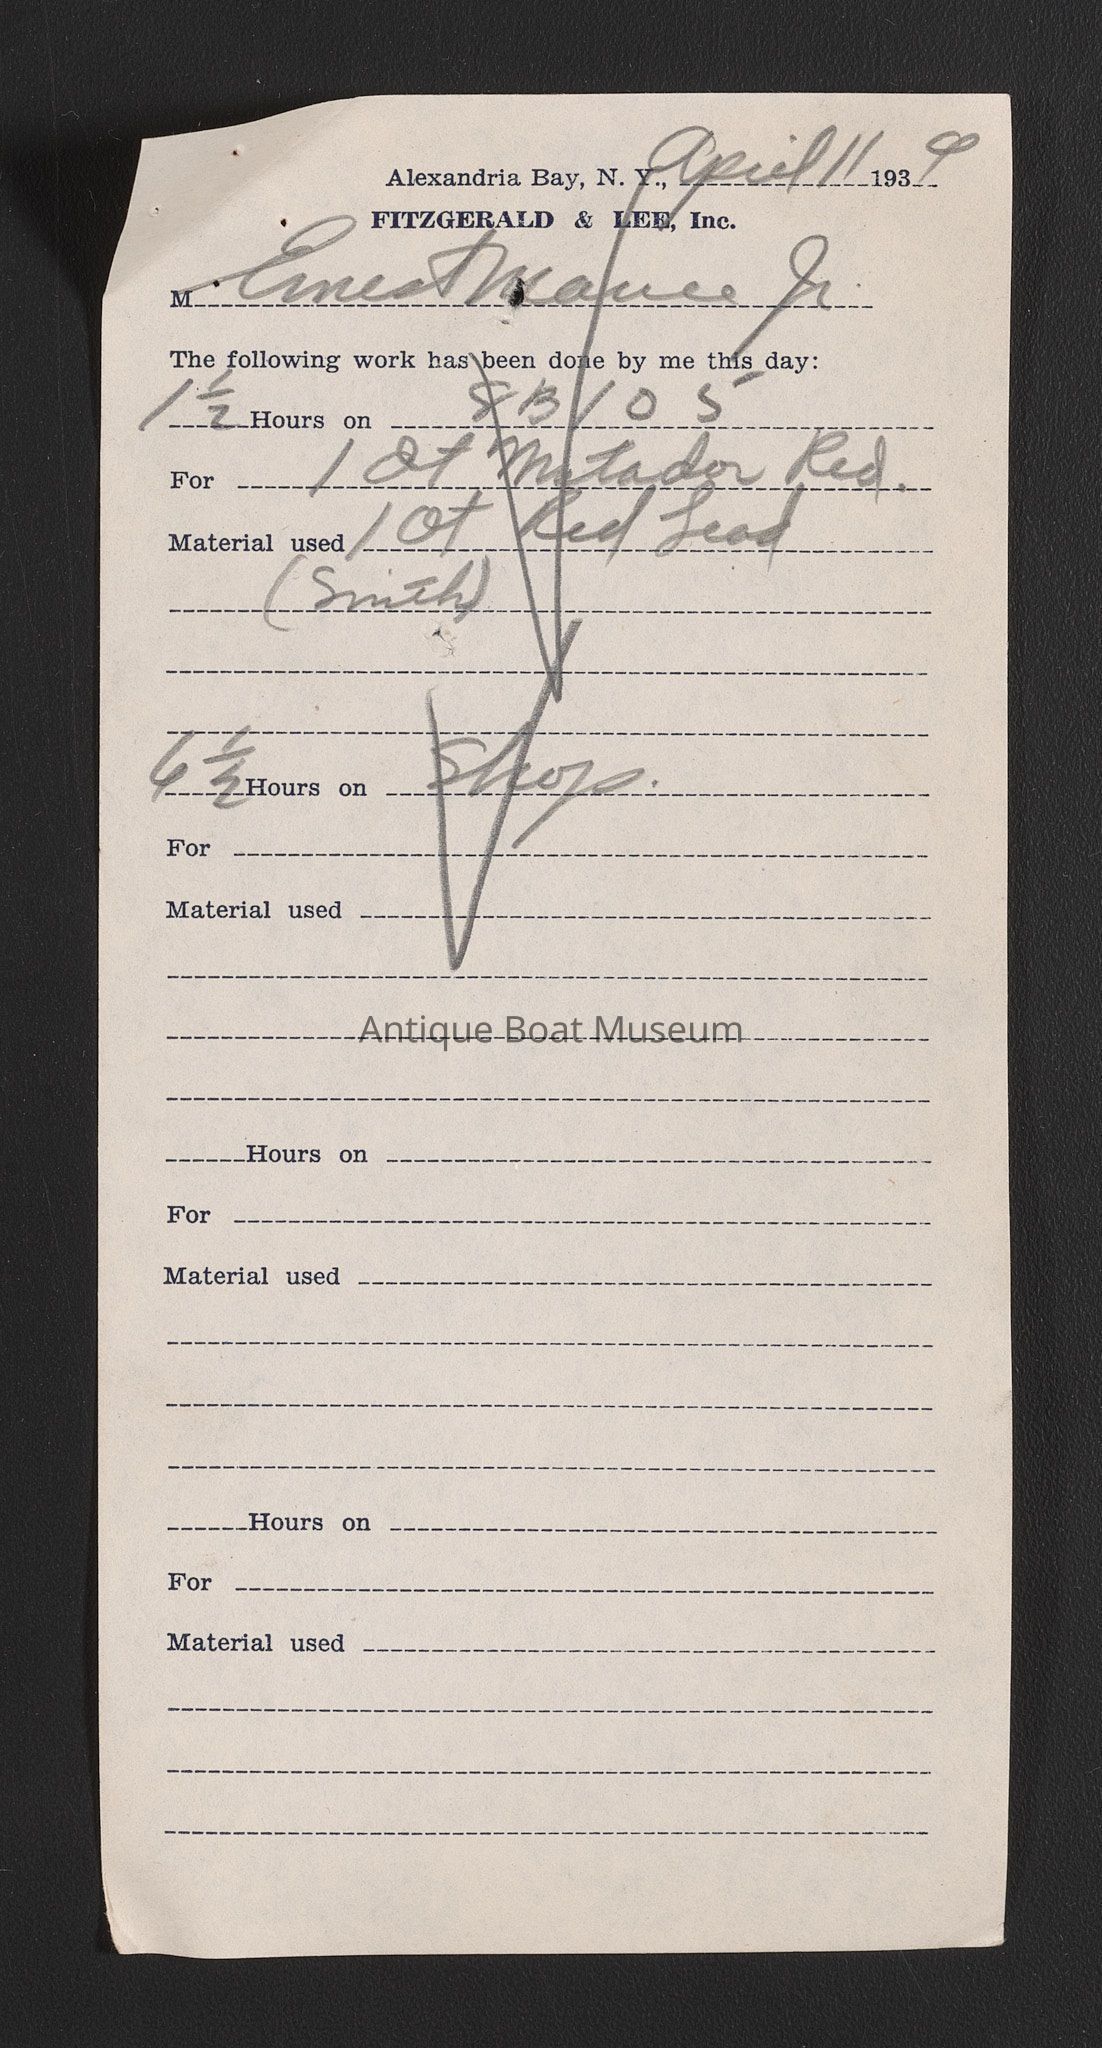 Alexandria Bay, N. Y., April 11 1939
FITZGERALD & LEE, Inc.
M Ernest Mance Jr.
The following work has been done by me this day:
1 1/2 Hours on 8 B 1 0 5
For 1 Qt Matador Red.
Material used 1 Qt Red Lead
(Smith)
6 1/2 Hours on Shop.
For
Material used
Antique Boat Museum
Hours on
For
Material used
Hours on
For
Material used